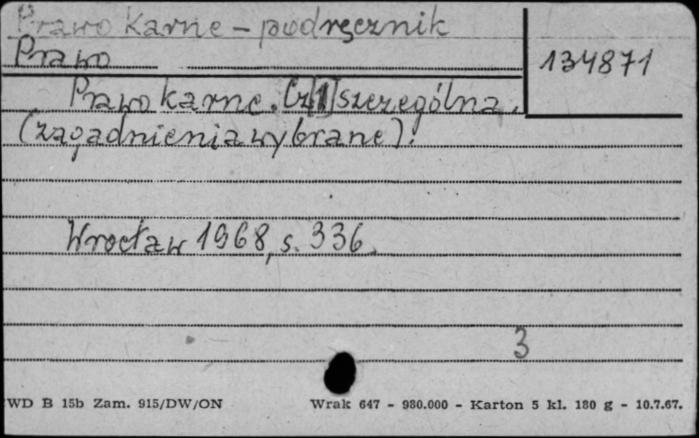 Prawo karne - podręcznik
Prawo
134871
Prawo karne. Cz[1] szczególna.
(zagadnienia wybrane).
Wrocław 1968, s. 336.
3
WD B 15b Zam. 915/DW/ON Wrak 647 - 980.000 - Karton 5 kl. 180 g - 10.7.67.